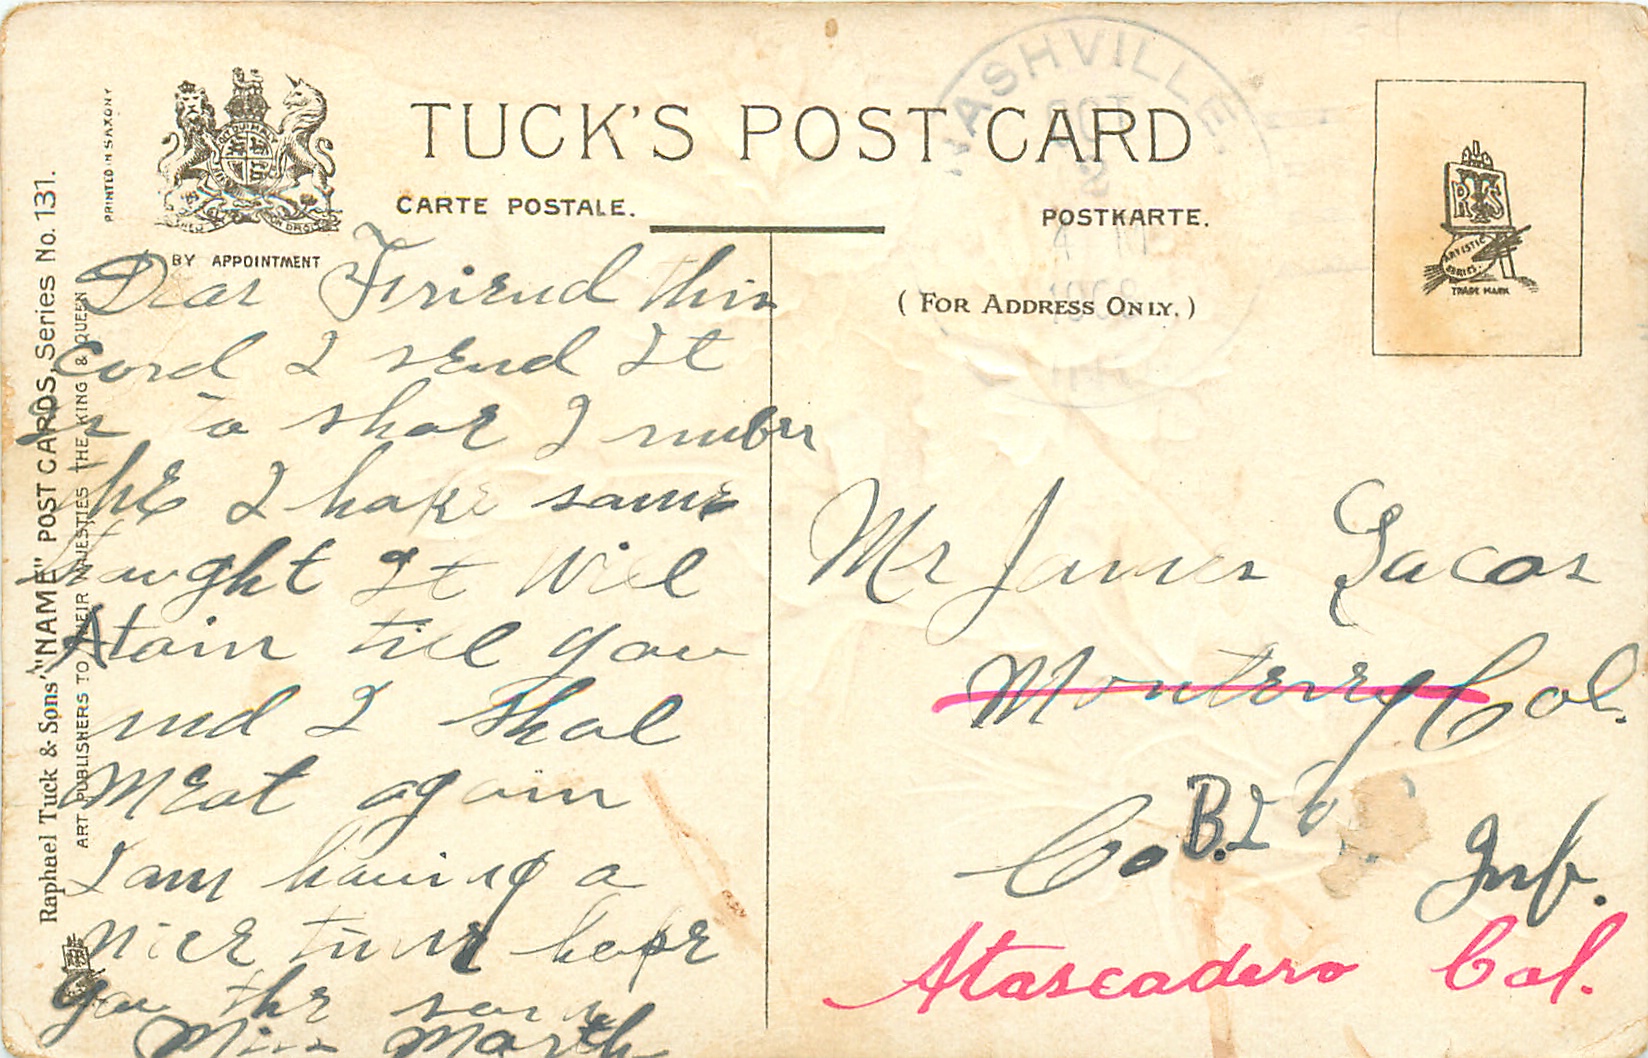 NASHVILLE.
OCT
2
4 M
1908
TUCK'S POST CARD
CARTE POSTALE.
POSTKARTE.
(FOR ADDRESS ONLY.)
BY APPOINTMENT
PRINTED IN SAXONY
Raphael Tuck & Sons' "NAME" POST CARDS, Series No. 131.
ART PUBLISHERS TO THEIR MAJESTIES THE KING & QUEEN
R T S
ARTISTIC
SERIES.
TRADE MARK
Dear Friend this
Card I send It
Is to shoe I rember
the I hope same
taught It Will
Atain till you
and I Shal
Meat again
I am having a
nice time hope
you the same
Miss Marth
Mr James
Monterey Cal.
Co B. 20 Inf.
Atascadero Cal.